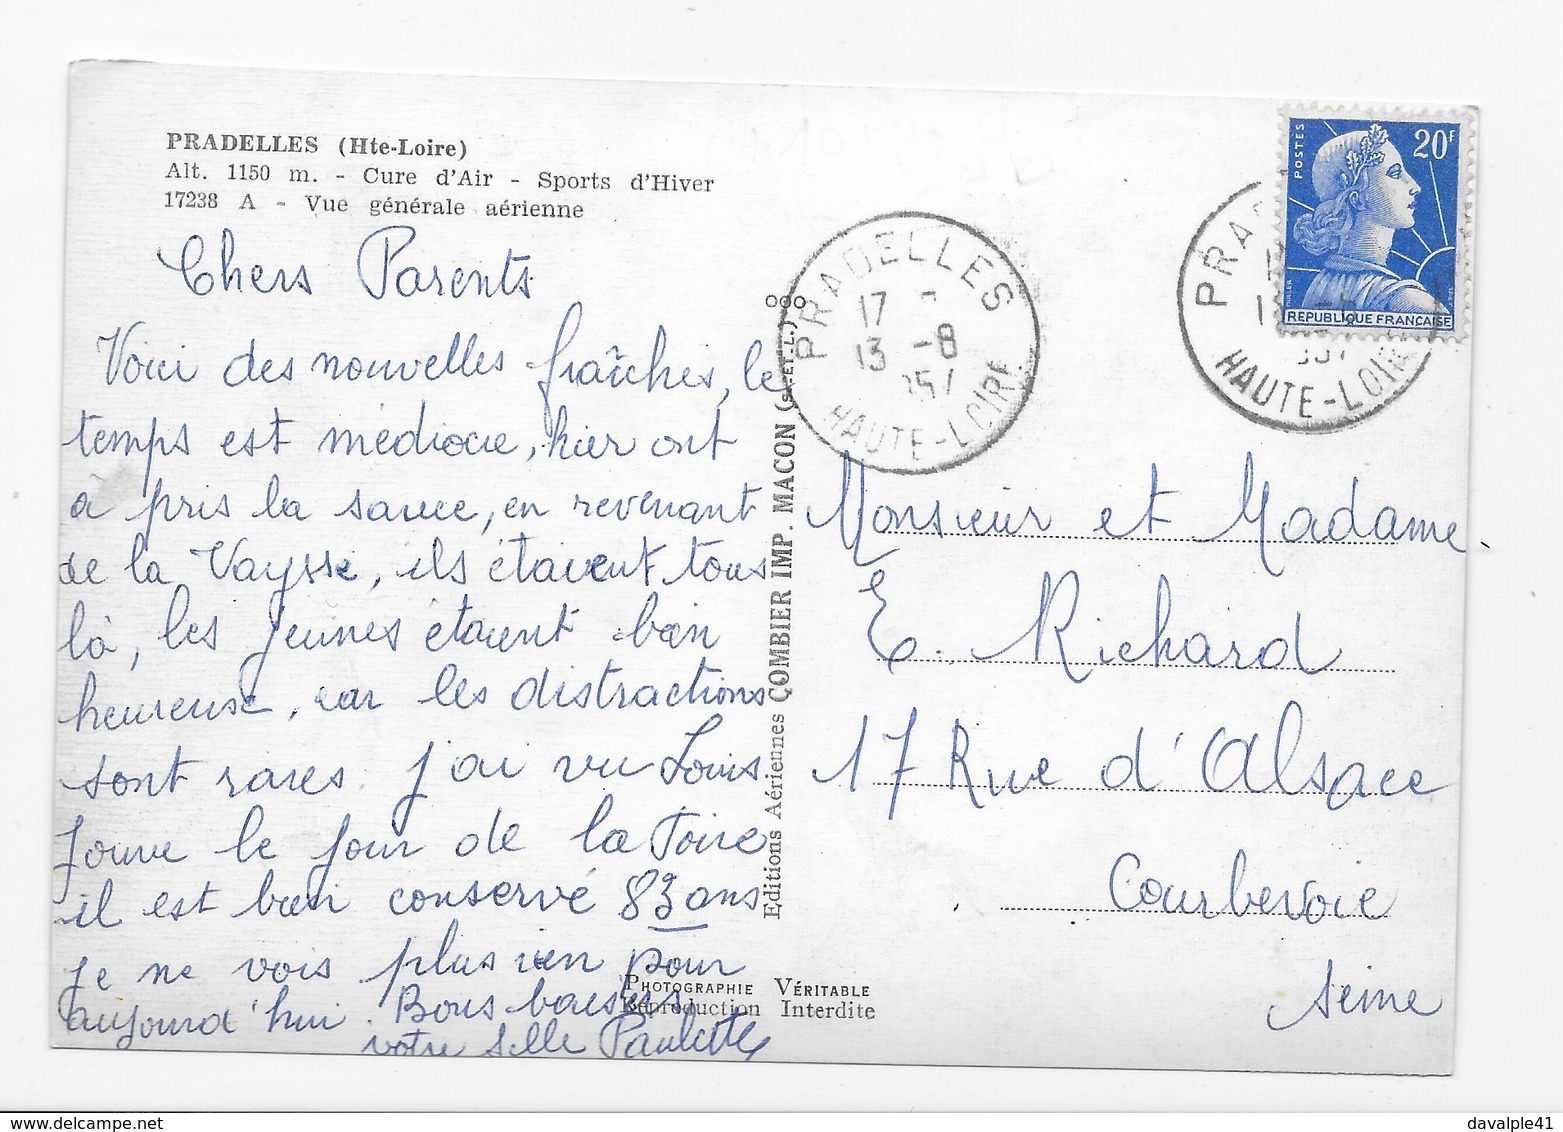 PRADELLES (Hte-Loire)
Alt. 1150 m. - Cure d'Air - Sports d'Hiver
17238 A - Vue générale aérienne
Chers Parents
Voici des nouvelles fraîches, le
temps est médiocre, hier ont
à pris la sauce, en revenant
de la Vaysse, ils étaient tous
là, les jeunes étaient bien
heureuse, car les distractions
sont rares. j'ai vu Louis
Jouve le jour de la Foire
il est bien conservé 83 ans
je ne vois plus rien pour
aujourd'hui. Bons baisers
votre fille Paulette
Editions Aériennes COMBIER IMP. MACON (S.-ET-L.)
PHOTOGRAPHIE VÉRITABLE
Reproduction Interdite
PRADELLES
17
13 -8
HAUTE-LOIRE
HAUTE-LOIRE
POSTES
20F
REPUBLIQUE FRANÇAISE
MULLER
Monsieur et Madame
E. Richard
17 Rue d'Alsace
Courbevoie
Seine
davalple41